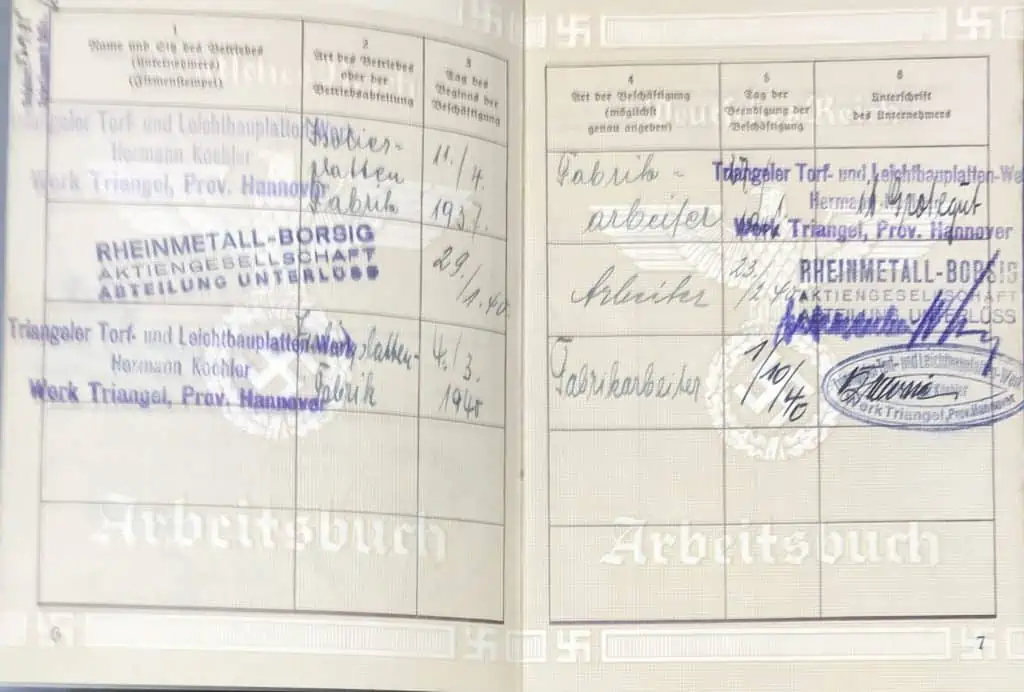 1
Name und Sitz des Betriebes
(Unternehmers)
(Firmenstempel)
2
Art des Betriebes
oder der
Betriebsabteilung
3
Tag des
Beginns der
Beschäftigung
Triangeler Torf- und Leichtbauplatten-Werk
Hermann Koehler
Werk Triangel, Prov. Hannover
Isolier-
platten
Fabrik
11./4.
1937.
RHEINMETALL-BORSIG
AKTIENGESELLSCHAFT
ABTEILUNG UNTERLÜSS
29./1.40.
Triangeler Torf- und Leichtbauplatten-Werk
Hermann Koehler
Werk Triangel, Prov. Hannover
platten-
Fabrik
4./3.
1940
Arbeitsbuch
6
4
Art der Beschäftigung
(möglichst
genau angeben)
5
Tag der
Beendigung der
Beschäftigung
6
Unterschrift
des Unternehmers
Deutsches Reich
Fabrik-
arbeiter
Triangeler Torf- und Leichtbauplatten-We
Hermann
Werk Triangel, Prov. Hannover
Arbeiter
23./
2.40
RHEINMETALL-BORSIG
AKTIENGESELLSCHAFT
ABTEILUNG UNTERLÜSS
Fabrikarbeiter
1/10/40
Torf- und Leichtbauplatten-Werk
Koehler
Werk Triangel, Prov. Hannover
Arbeitsbuch
7